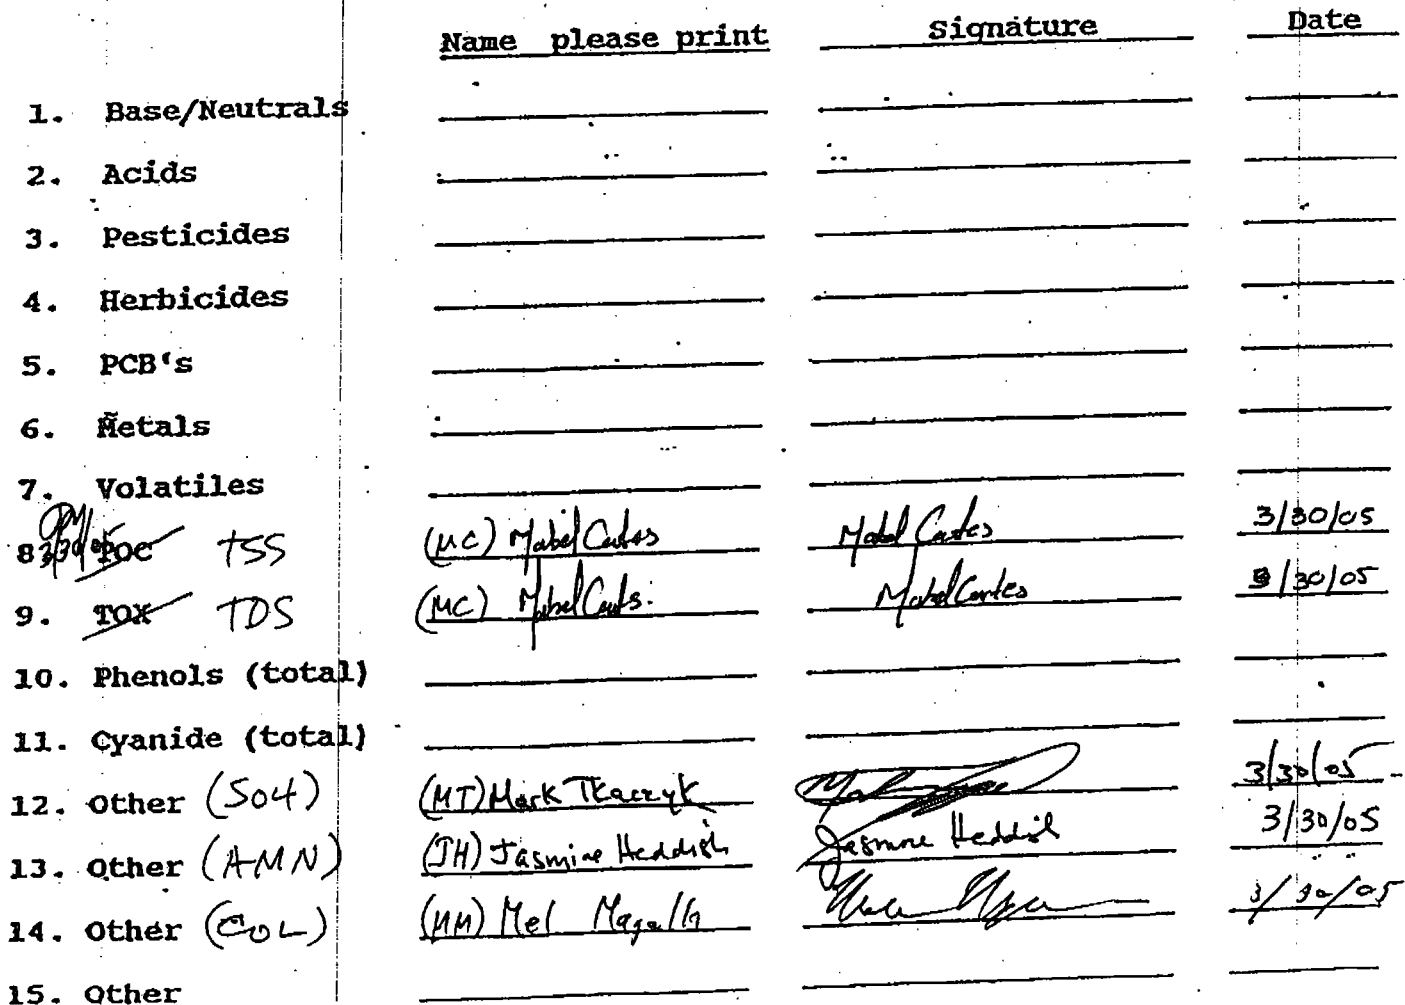 Name please print Signature Date
1. Base/Neutrals
2. Acids
3. Pesticides
4. Herbicides
5. PCB's
6. Metals
7. Volatiles
8 3/30/05 TOC TSS (MC) Mabel Cortes Mabel Cortes 3/30/05
9. TOX TDS (MC) Mabel Cortes Mabel Cortes 3/30/05
10. Phenols (total)
11. Cyanide (total)
12. Other (SO4) (MT) Mark Tkaczyk 3/30/05
13. Other (AMN) (JH) Jasmine Heddish Jasmine Heddish 3/30/05
14. Other (COL) (MM) Mel 3/30/05
15. Other